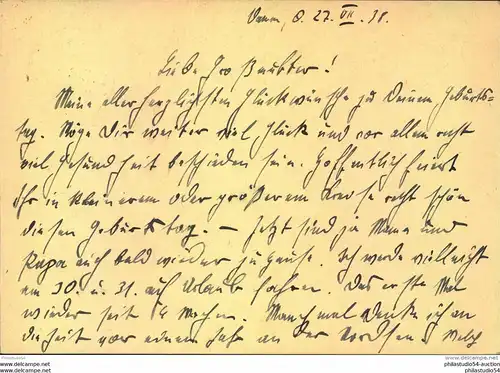 d. 27. VII. 38.
Liebe Großmutter!
Meine allerherzlichsten Glückwünsche zu Deinem Geburts-
tag. Möge Dir weiter viel Glück und vor allem recht
viel Gesundheit beschieden sein. Hoffentlich feiert
Ihr in kleinerem oder größerem Kreise recht schön
diesen Geburtstag. – Jetzt sind ja Mama und
Papa auch bald wieder zu Hause. Ich werde vielleicht
am 30. u. 31. auf Urlaub fahren. Das erste Mal
wieder seit 4 Wochen. Manchmal denke ich an
die Zeit vor einem Jahr an der Nordsee. Welch
philastudio54-auction
philastudio54-auction.com